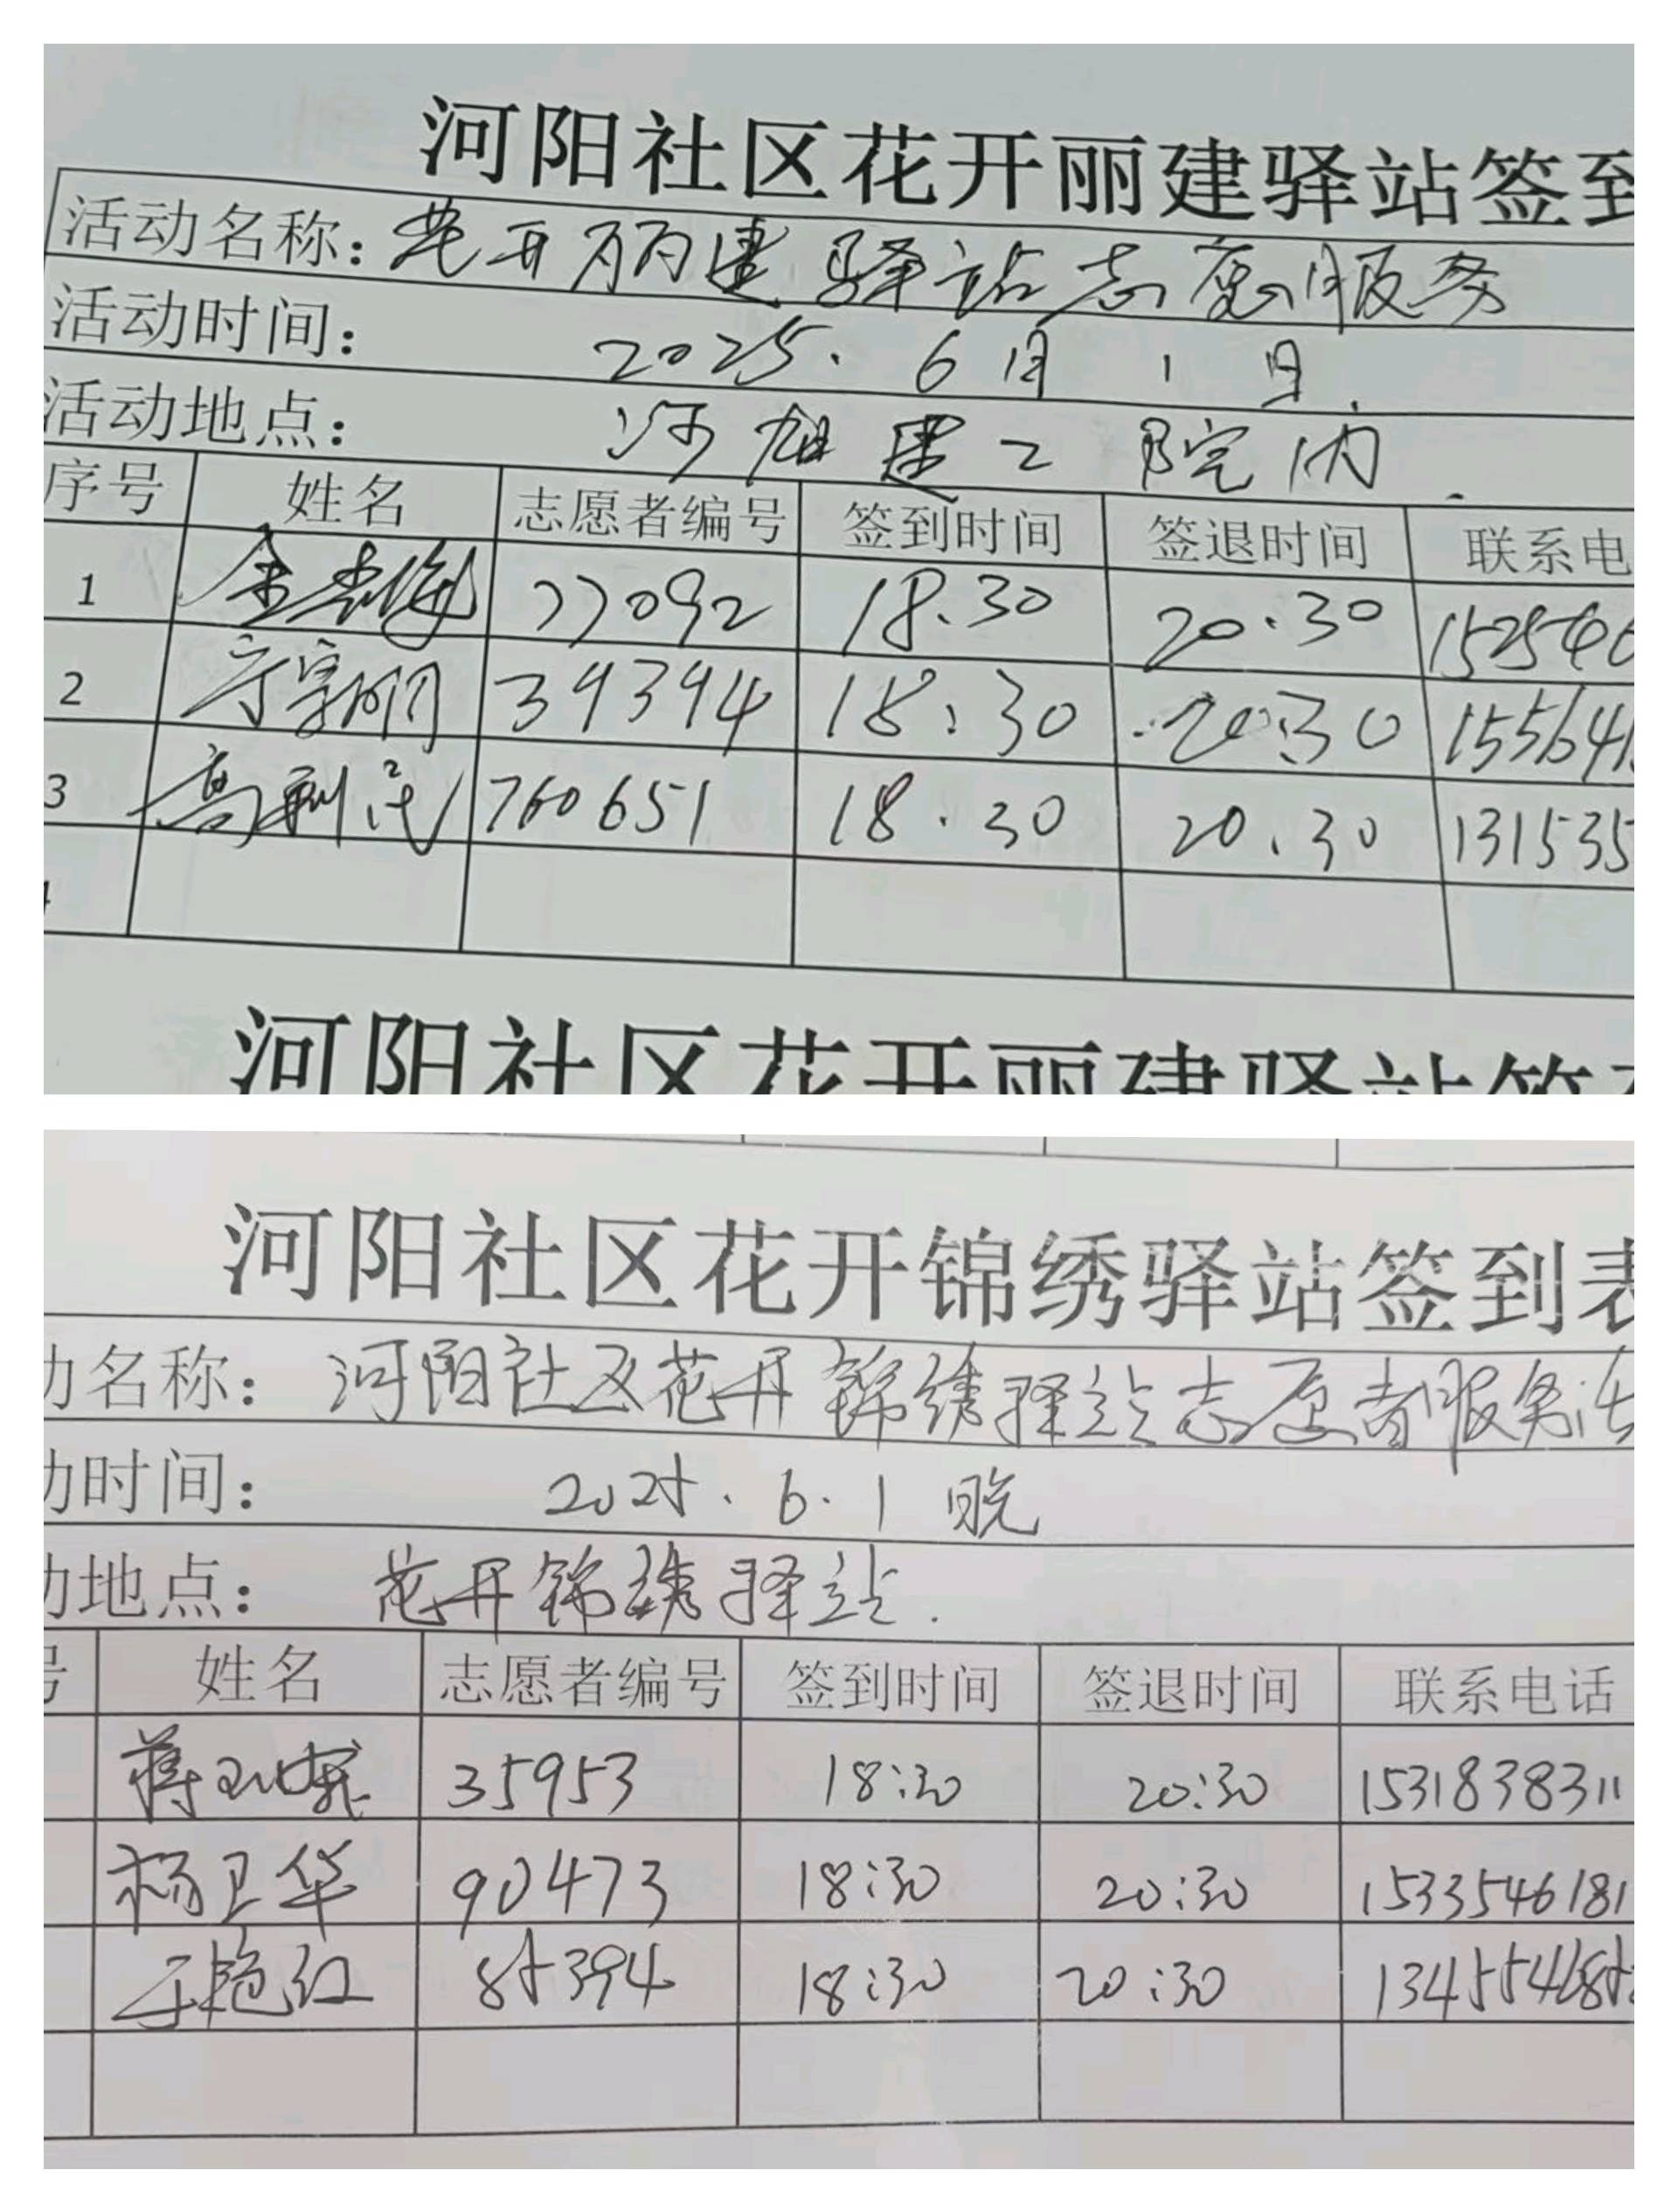 河阳社区花开丽建驿站签到
活动名称：花开丽建驿站志愿服务
活动时间： 2025. 6月 1日.
活动地点： 河阳建工院内.
序号 姓名 志愿者编号 签到时间 签退时间 联系电
1 77092 18.30 20.30 152546
2 39394 18:30 20:30 155641
3 高利民 760651 18.30 20.30 131535
河阳社区花开丽建驿站签到
河阳社区花开锦绣驿站签到表
动名称：河阳社区花开锦绣驿站志愿者服务活
动时间： 2025.6.1晚
动地点： 花开锦绣驿站.
号 姓名 志愿者编号 签到时间 签退时间 联系电话
蒋 35953 18:30 20:30 1531838311
杨卫华 90473 18:30 20:30 1533546181
于艳红 85394 18:30 20:30 134554685